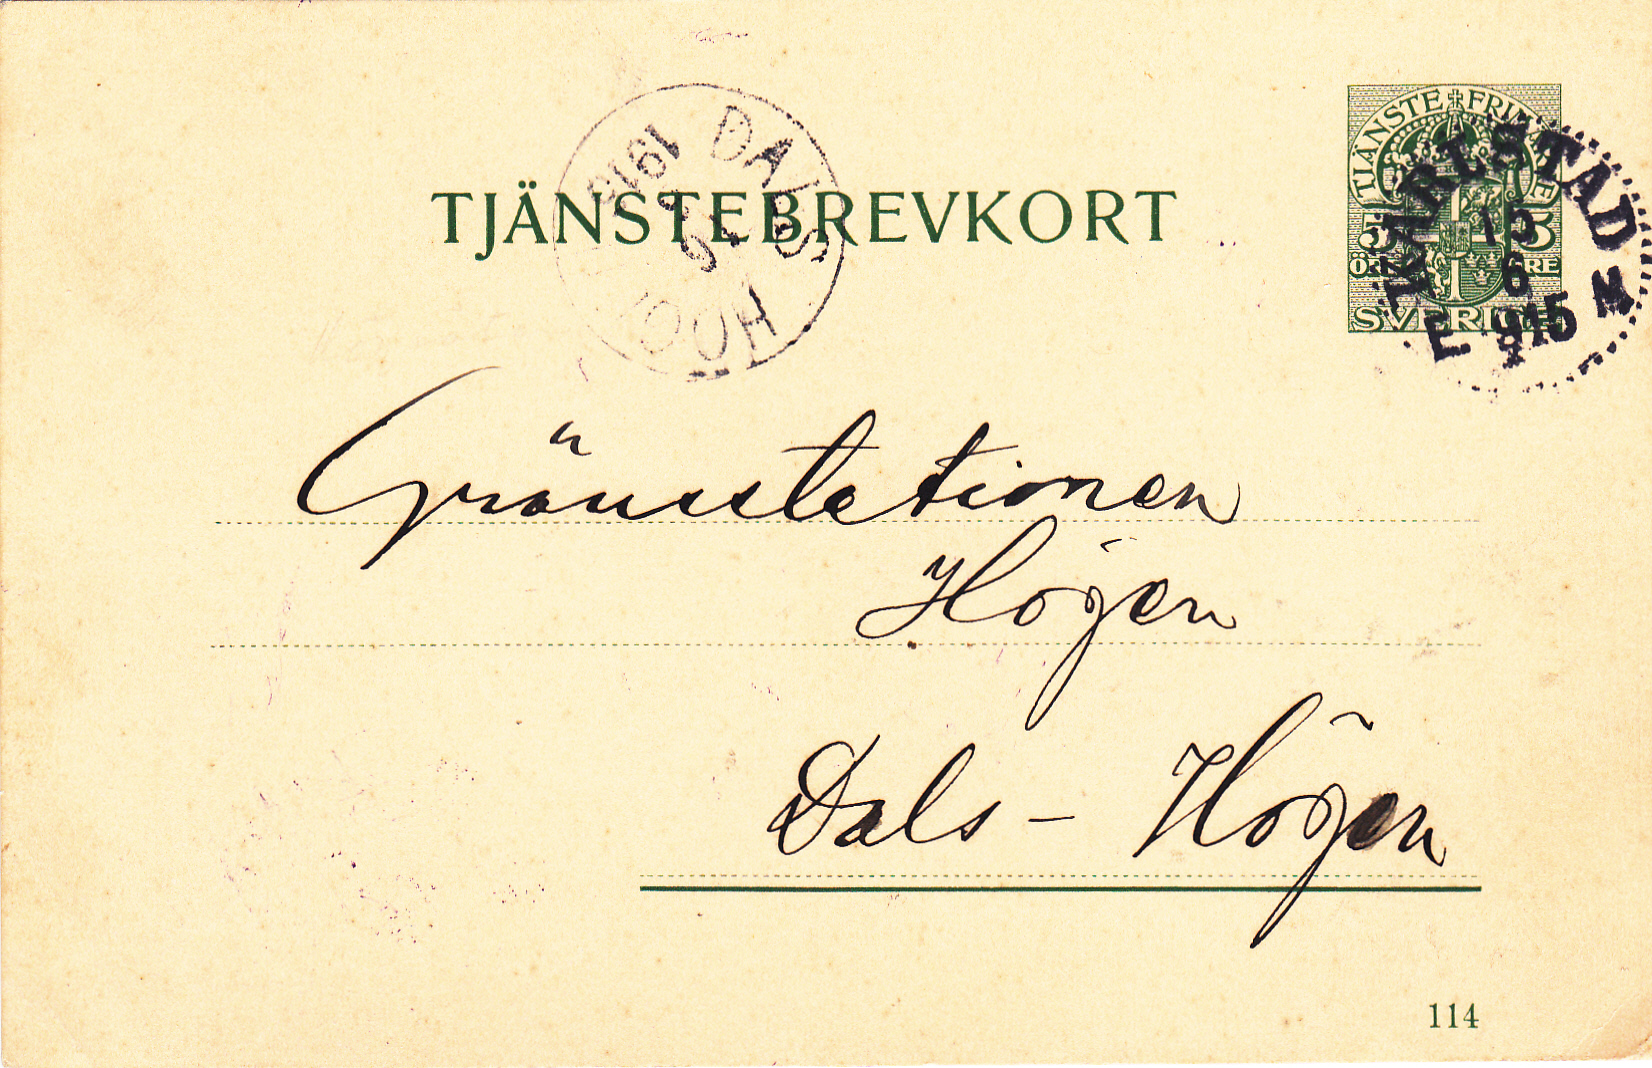 TJÄNSTEBREVKORT
TJÄNSTE FRIMÄRKE
5 5
ÖRE ÖRE
SVERIGE
KARLSTAD
15
6
E. 915 M
DALS
HÖGEN
1915
6
Gränsstationen
Högen
Dals - Högen
114